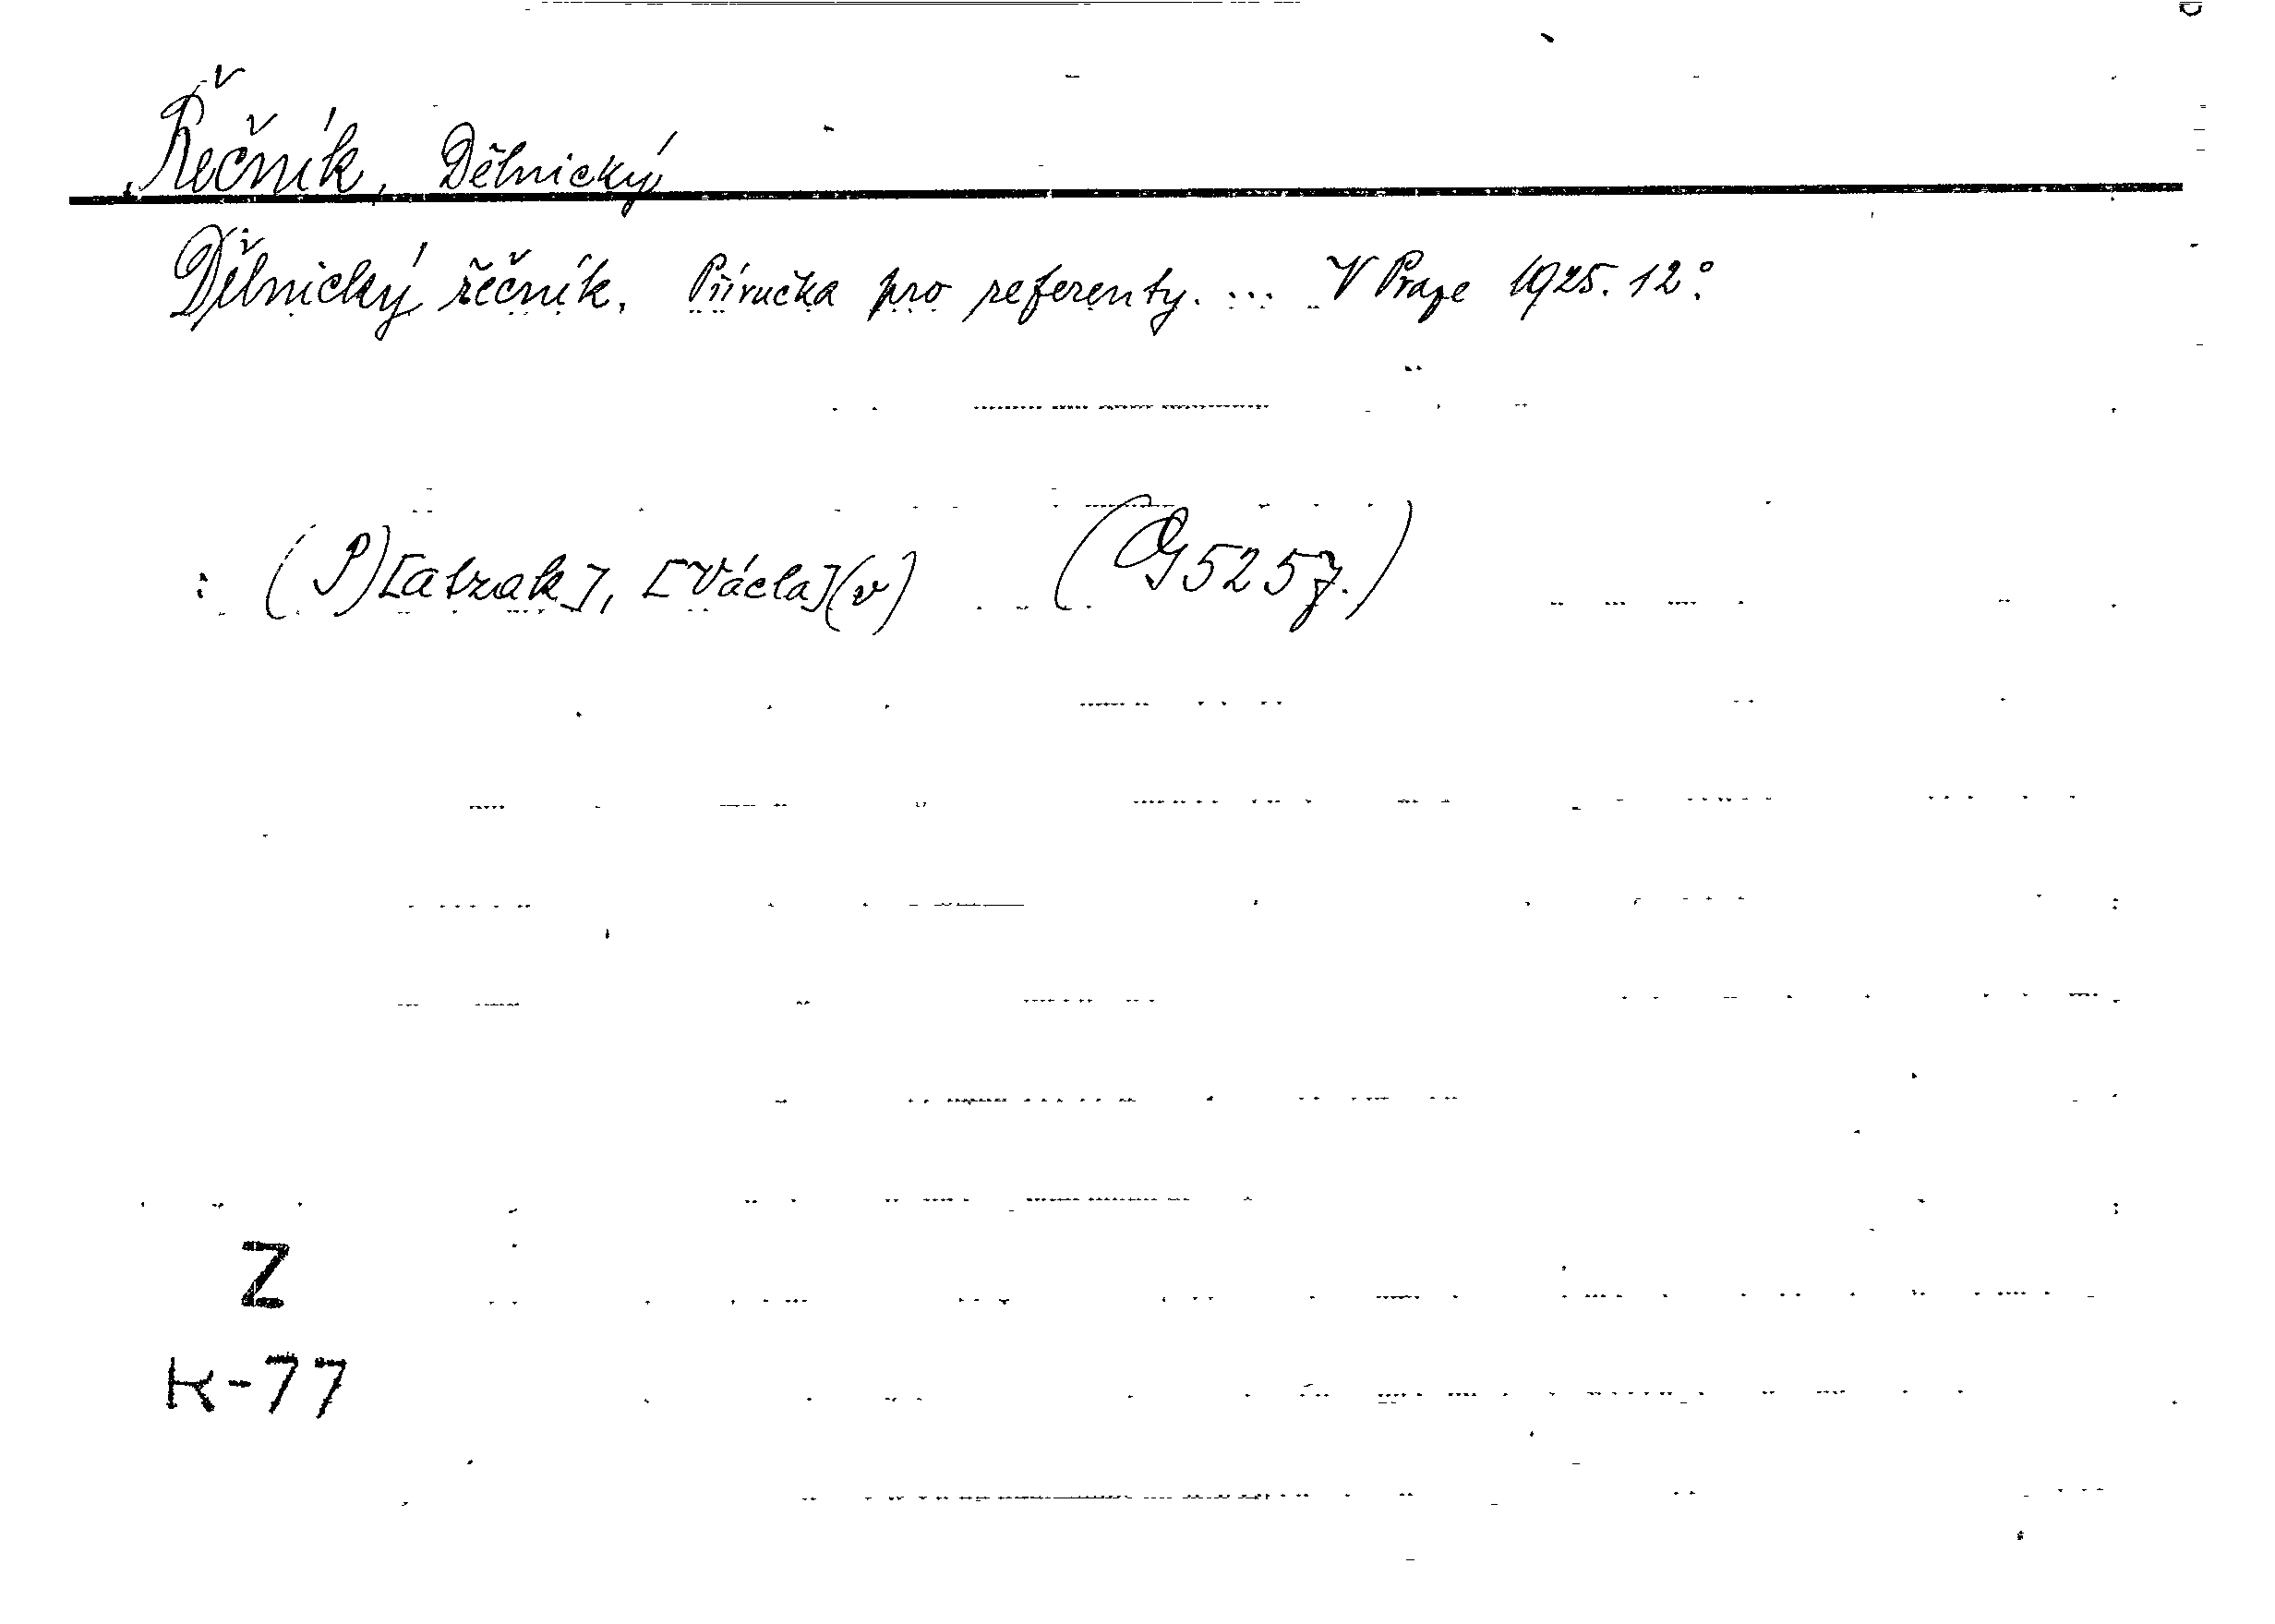 Řečník, Dělnický
Dělnický řečník. Příručka pro referenty. ... V Praze 1925. 12°.
: (P)[abzak], [Václa](v) (G 5257.)
Z
K-77